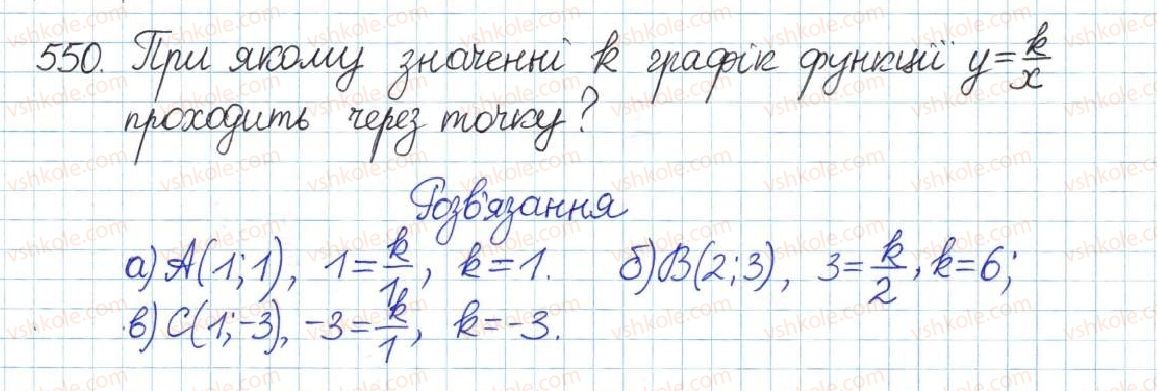 550. При якому значенні k графік функції y=k/x
проходить через точку?
Розв'язання
а) A(1;1), 1=k/1, k=1. б) B(2;3), 3=k/2, k=6;
в) C(1;-3), -3=k/1, k=-3.